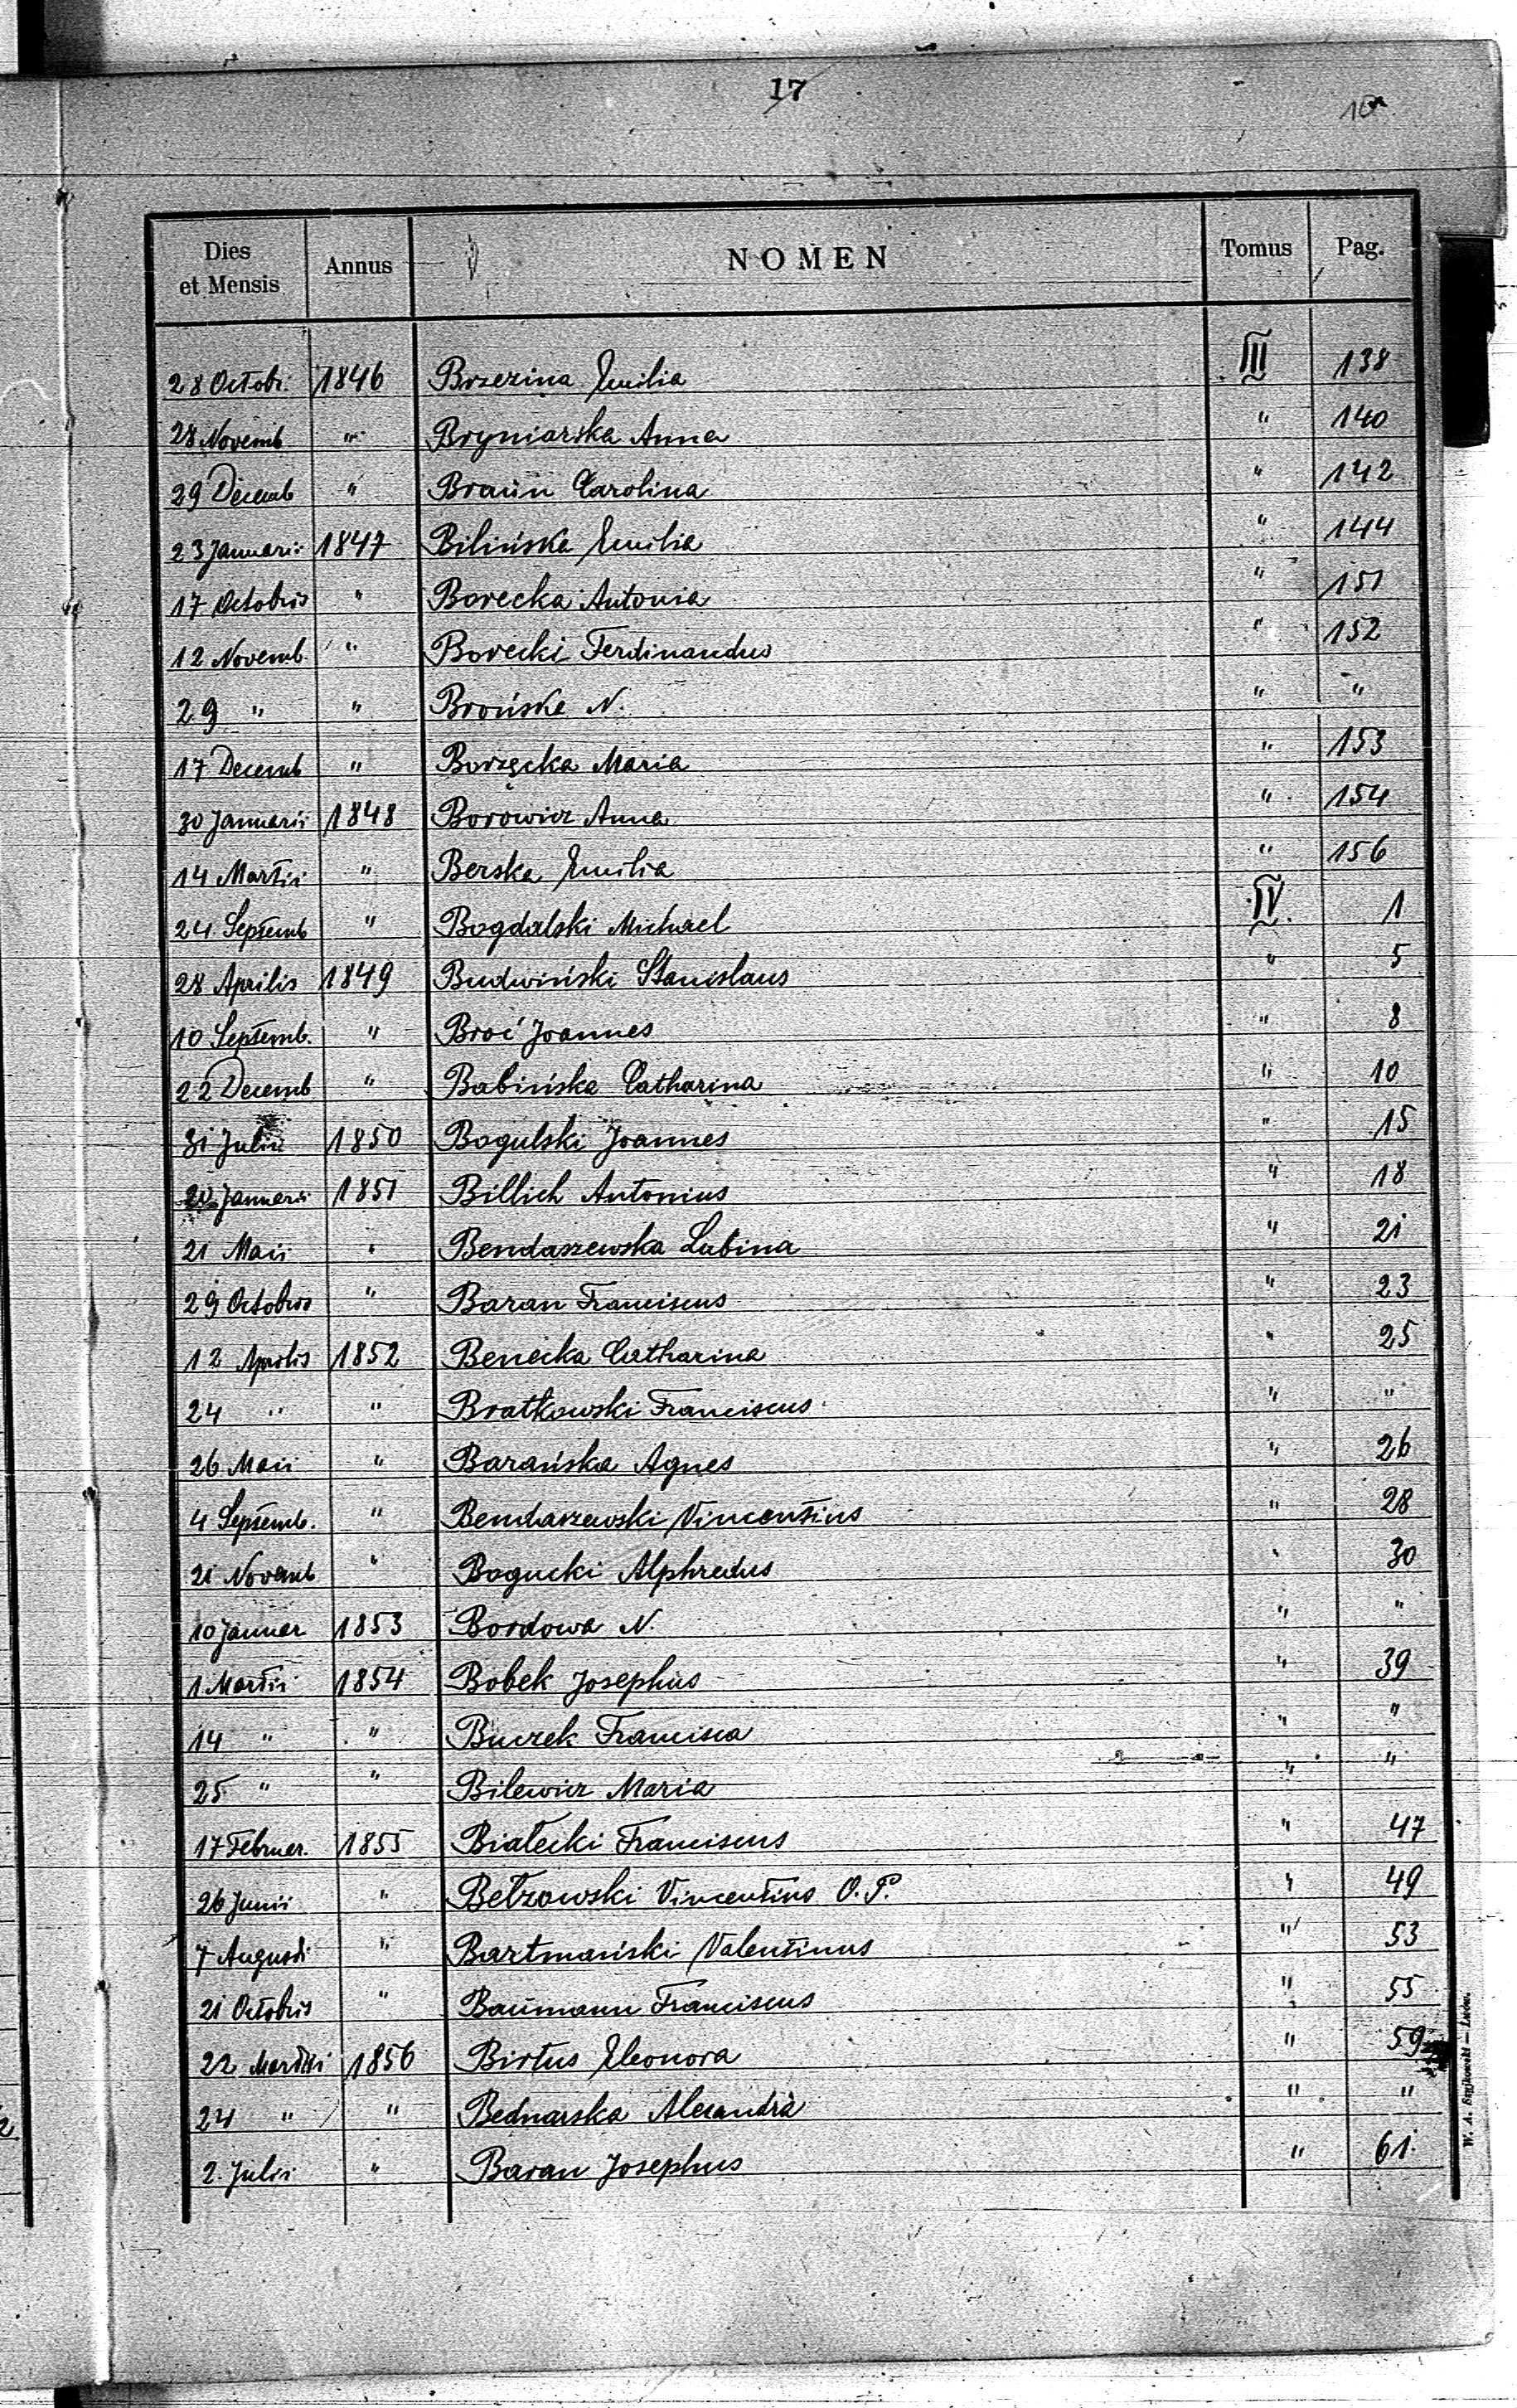 17
10
Dies et Mensis Annus NOMEN Tomus Pag.
28 Octobr. 1846 Brzezina Emilia III 138
28 Novemb " Bryniarska Anna " 140
29 Decemb " Braun Carolina " 142
23 Januarii 1847 Bilińska Emilia " 144
17 Octobris " Borecka Antonia " 151
12 Novemb. " Borecki Ferdinandus " 152
29 " " Brońska N. " "
17 Decemb " Borzęcka Maria " 153
30 Januarii 1848 Borowicz Anna " 154
14 Martii " Berska Emilia " 156
24 Septemb " Bogdalski Michael IV. 1
28 Aprilis 1849 Budwiński Stanislaus " 5
10 Septemb. " Broć Joannes " 8
22 Decemb " Babińska Catharina " 10
31 Julii 1850 Bogulski Joannes " 15
20 Januarii 1851 Billich Antonius " 18
21 Maii " Bendaszewska Lubina " 21
29 Octobris " Baran Franciscus " 23
12 Aprilis 1852 Benecka Catharina " 25
24 " " Bratkowski Franciscus " "
26 Maii " Barańska Agnes " 26
4 Septemb. " Bendaszewski Vincentius " 28
21 Novemb " Bogucki Alphredus " 30
10 Januar 1853 Bordowa N. " "
1 Martii 1854 Bobek Josephus " 39
14 " " Buczek Francisca " "
25 " " Bilewicz Maria " "
17 Februar. 1855 Białecki Franciscus " 47
26 Junii " Bełzowski Vincentius O.P. " 49
7 Augusti " Bartmański Valentinus " 53
21 Octobris " Baumann Franciscus " 55
22 Martii 1856 Birtus Eleonora " 59
24 " " Bednarska Alexandra " "
2. Julii " Baran Josephus " 61.
W. A. Szyjkowski — Lwów.